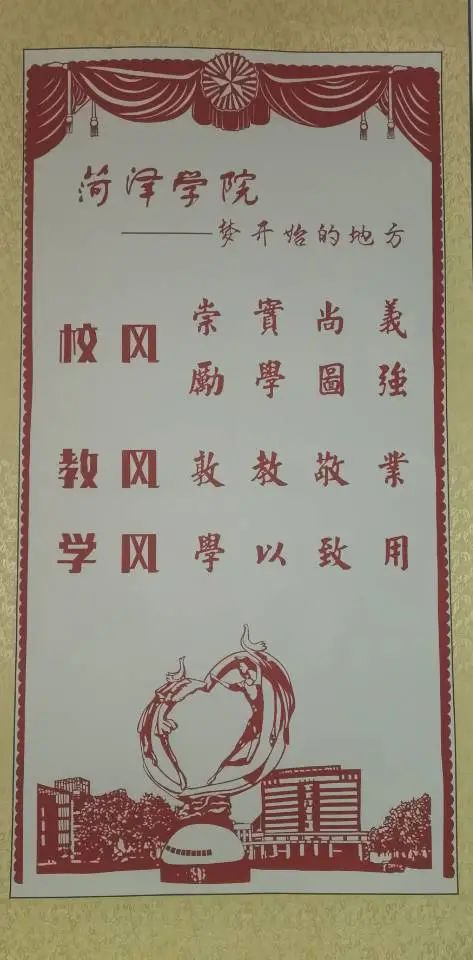 菏泽学院
——梦开始的地方
校风 崇實尚義
勵學圖強
教风 敦教敬業
学风 學以致用